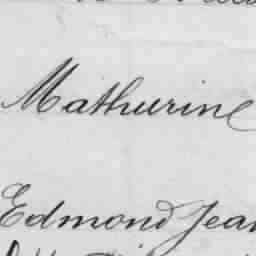 Mathurine
Edmond Jean